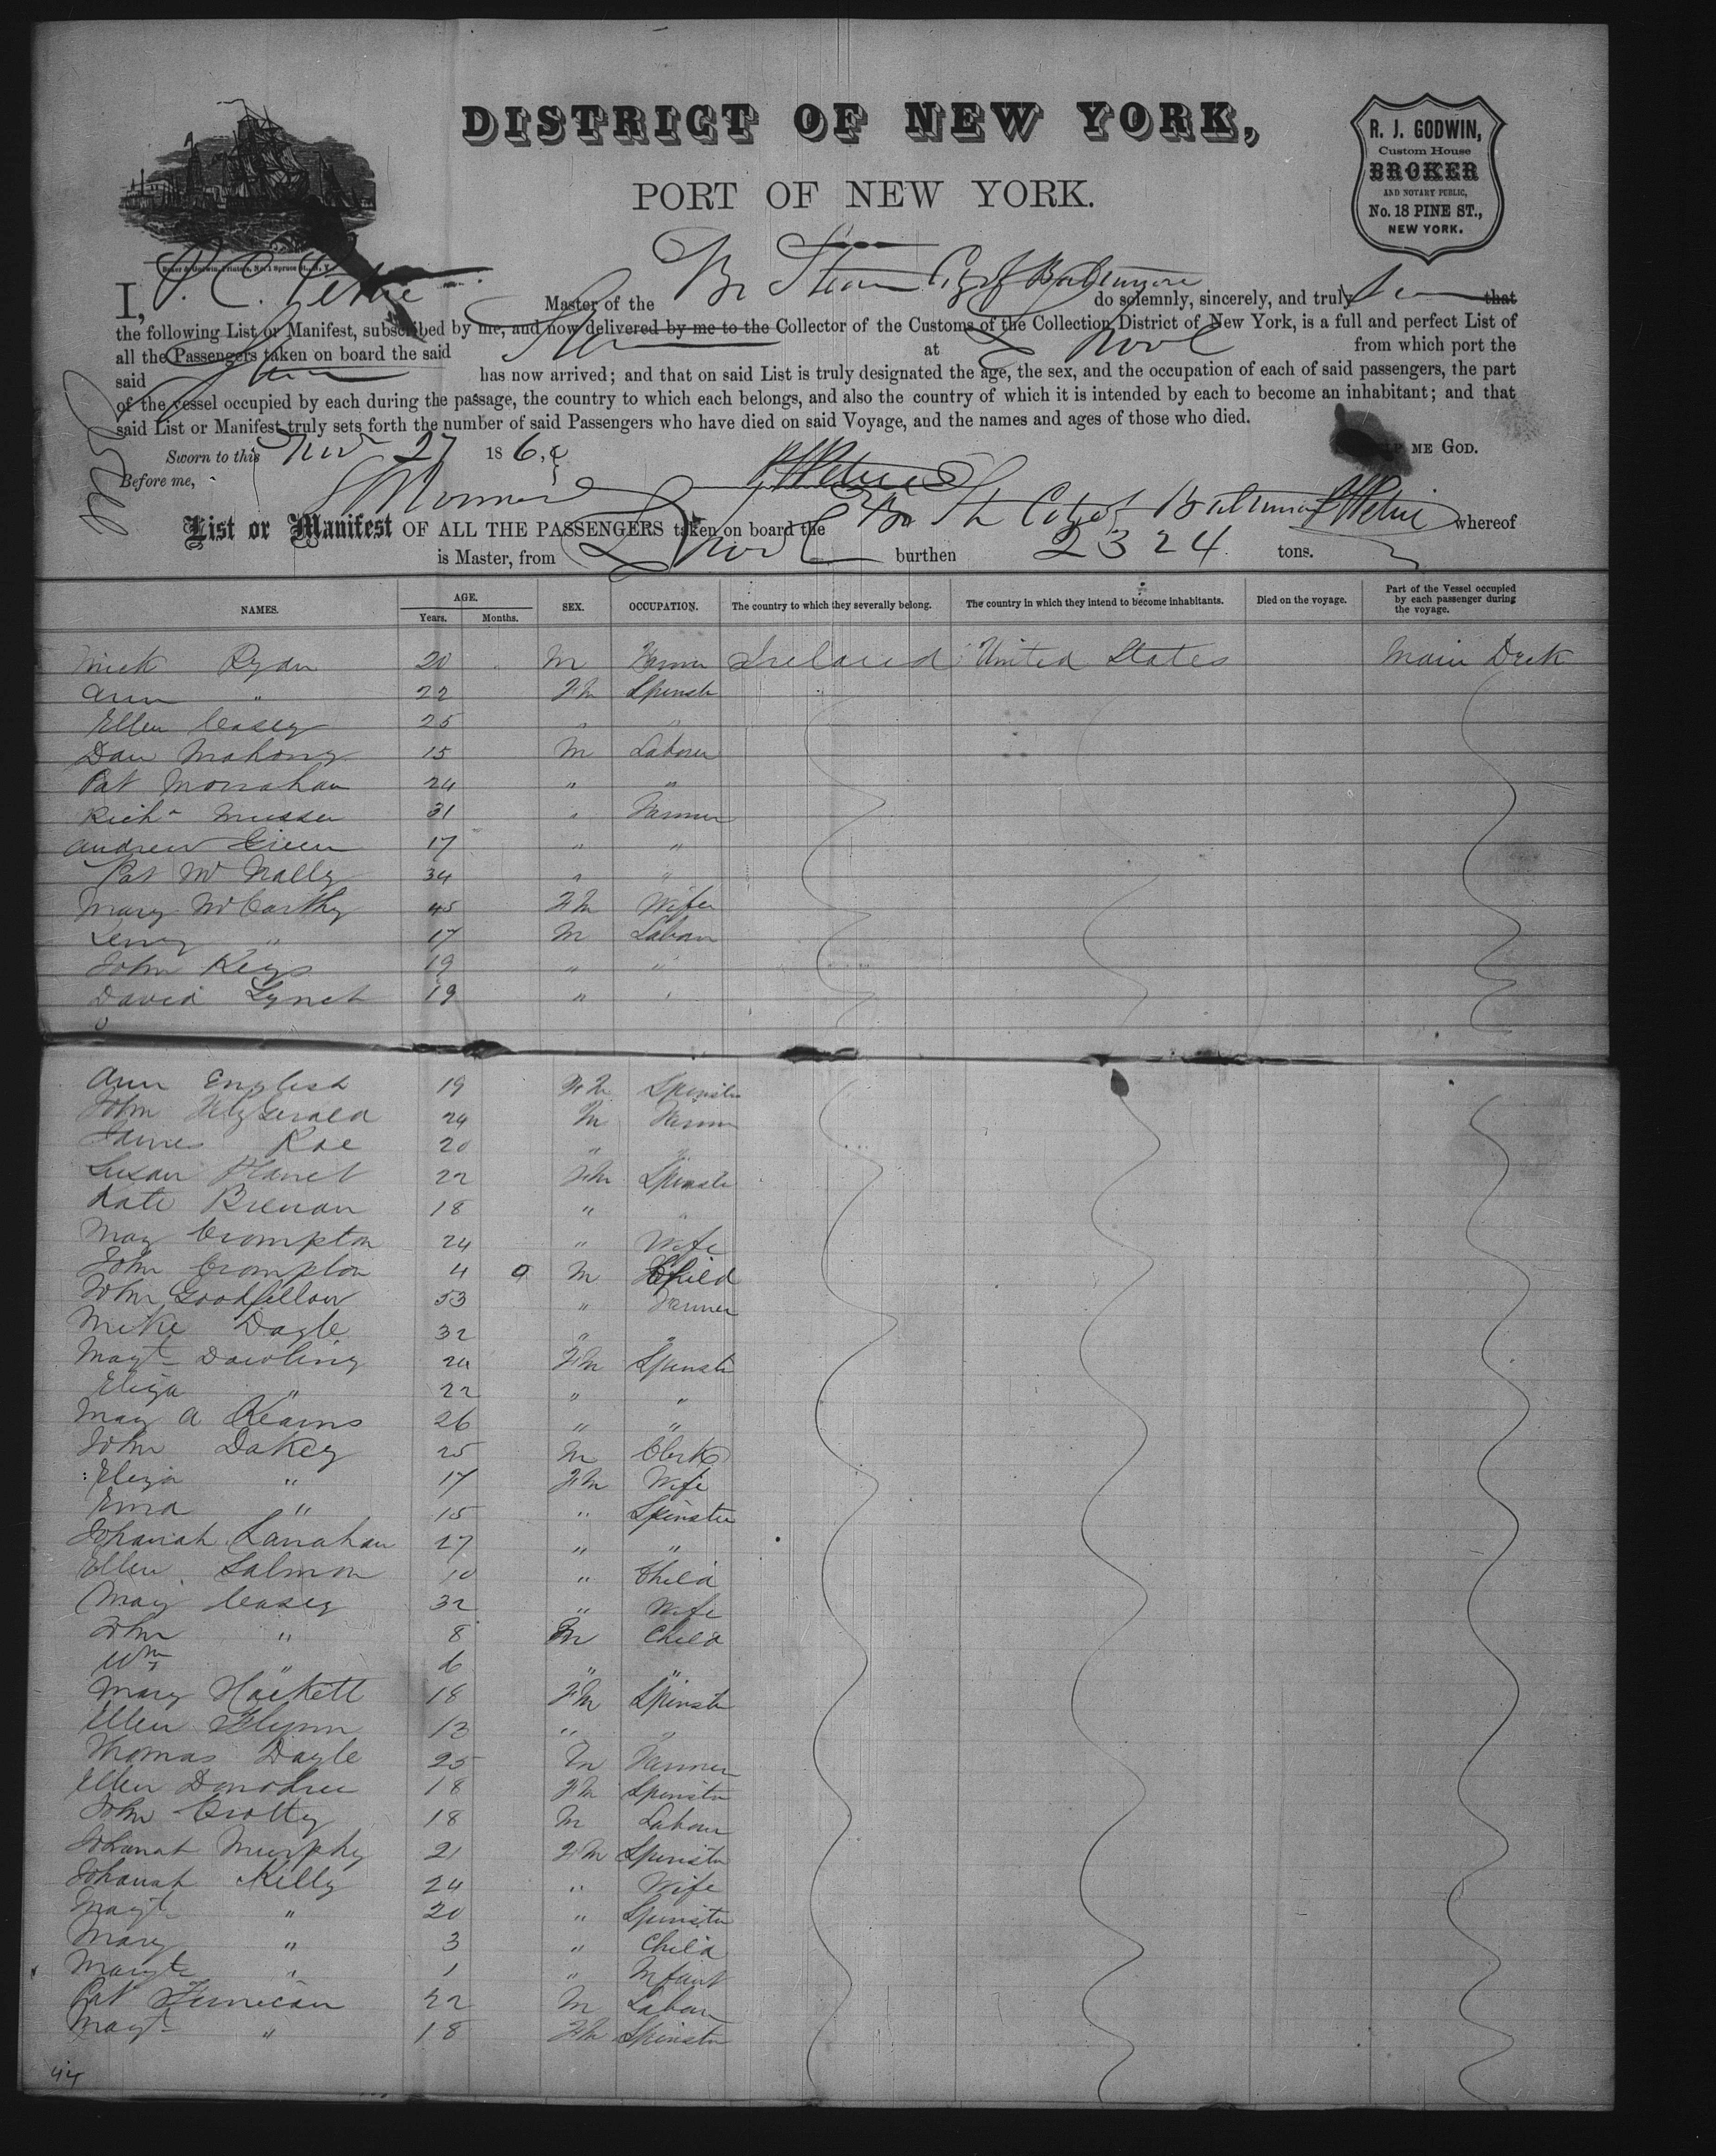 DISTRICT OF NEW YORK,
PORT OF NEW YORK.
R. J. GODWIN,
Custom House
BROKER
AND NOTARY PUBLIC,
No. 18 PINE ST.,
NEW YORK.
Baker & Godwin, Printers, No. 1 Spruce St., N. Y.
I, Master of the Br Steam City of Baltimore do solemnly, sincerely, and truly that
the following List or Manifest, subscribed by me, and now delivered by me to the Collector of the Customs of the Collection District of New York, is a full and perfect List of
all the Passengers taken on board the said at L'pool from which port the
said has now arrived; and that on said List is truly designated the age, the sex, and the occupation of each of said passengers, the part
of the vessel occupied by each during the passage, the country to which each belongs, and also the country of which it is intended by each to become an inhabitant; and that
said List or Manifest truly sets forth the number of said Passengers who have died on said Voyage, and the names and ages of those who died.
ME GOD.
Sworn to this Nov 27 186
Before me,
List or Manifest OF ALL THE PASSENGERS taken on board the Br St City of Baltimore whereof
is Master, from L'pool burthen 2324 tons.
NAMES. AGE. Years. Months. SEX. OCCUPATION. The country to which they severally belong. The country in which they intend to become inhabitants. Died on the voyage. Part of the Vessel occupied by each passenger during the voyage.
Mick Ryan 20 M Farmer Ireland United States Main Deck
Ann " 22 Fm Spinster
Ellen Casey 25 " "
Dan Mahony 15 M Laborer
Pat Monahan 24 " "
Richd 31 " Farmer
Andrew Green 17 " "
Pat McNally 34 " "
Mary McCarthy 45 Fm Wife
" 17 M Labour
John Keys 19 " "
David Lynch 19 " "
Ann English 19 Fm Spinster
John Fitzgerald 24 M Farmer
James Roe 20 " "
Susan 22 Fm Spinster
Kate Brenan 18 " "
May Crompton 24 " Wife
John Crompton 4 9 M Child
John Goodfellow 53 " Farmer
Mike Doyle 32 " "
Magt Dowling 24 Fm Spinster
Eliza " 22 " "
May A Kearns 26 " "
John Dakey 25 M Clerk
Eliza " 17 Fm Wife
" 15 " Spinster
Johanah Lanahan 27 " "
Ellen Salmon 10 " Child
May Casey 32 " Wife
John " 8 M Child
Wm " 6 " "
Mary Hackett 18 Fm Spinster
Ellen Flynn 13 " "
Thomas Doyle 25 M Farmer
Ellen Donohue 18 Fm Spinster
John Crotty 18 M Labour
Johanah Murphy 21 Fm Spinster
Johanah Kelly 24 " Wife
Magt " 20 " Spinster
Mary " 3 " Child
Margte " 1 " Infant
Pat Finnican 22 M Labour
Magt " 18 Fm Spinster
44